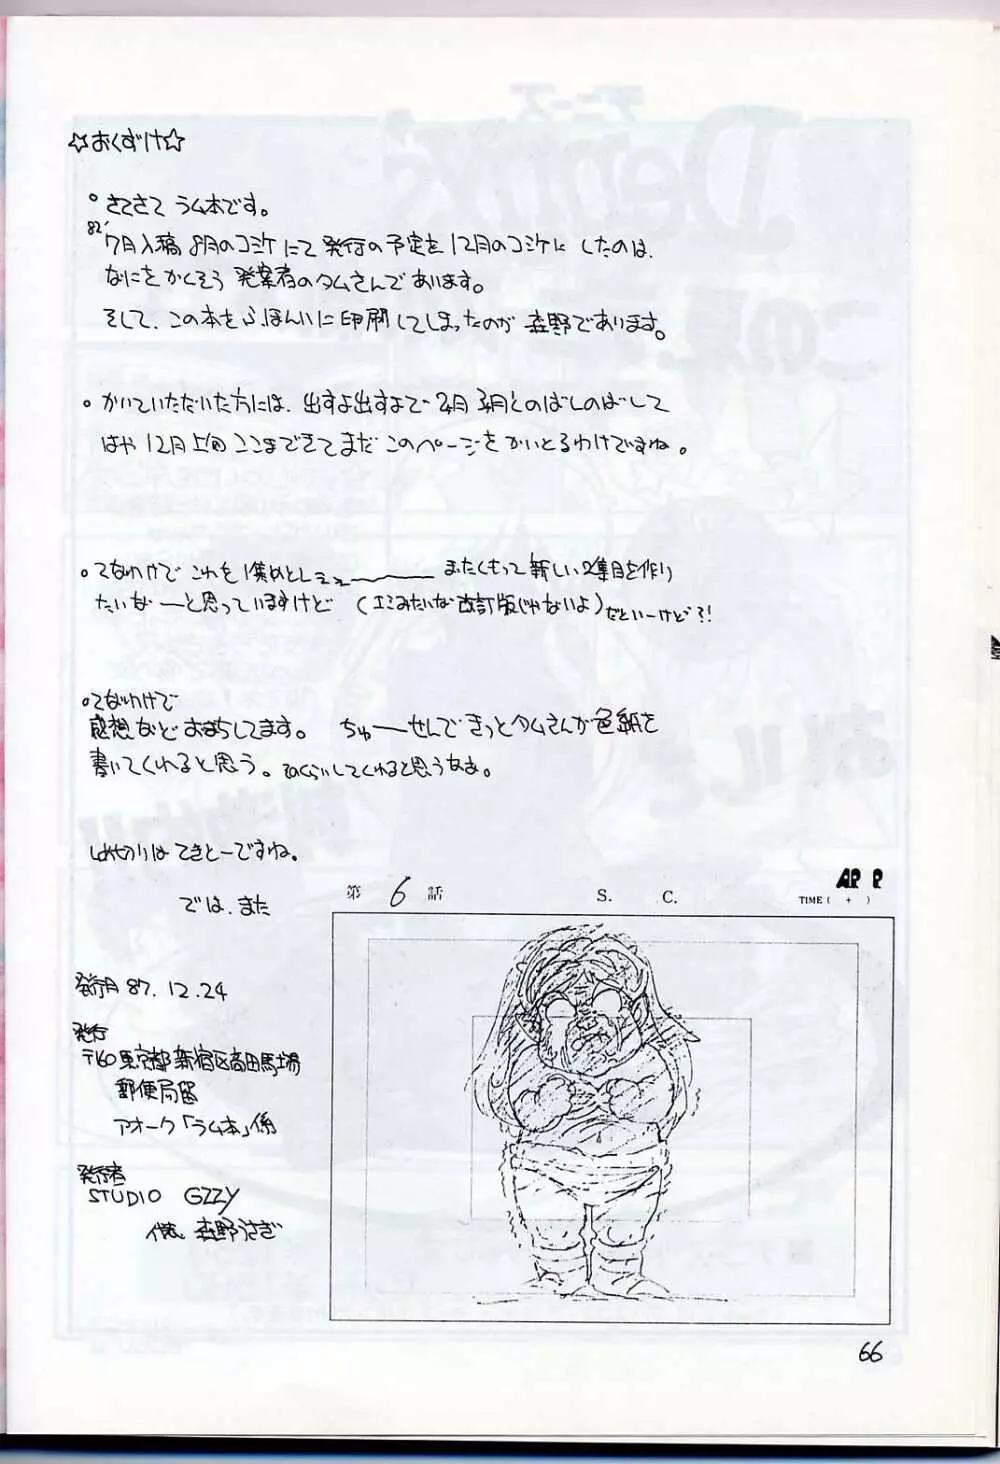 ☆おくずけ☆
。さてさて ラム本です。
82'
7月入稿 8月のコミケにて発行の予定を12月のコミケにしたのは、
なにをかくそう 発案者のタムさんであります。
そして、この本をふほんいに印刷してしまったのが 森野であります。
。かいていただいた方には、出すよ出すよで 2月 3月とのばしのばして
はや12月上旬 ここまできてまだこのページをかいとるわけですね。
。てなわけで これを1集めとしてぇ またくもって新しい2集目を作り
たいなーと思っていますけど (エミみたいな改訂版じゃないよ)だといーけど?!
。てなわけで
感想などおまちしてます。 ちゅーせんできっとタムさんが色紙を
書いてくれると思う。そのくらいしてくれると思うなぁ。
しめ切りは てきとーですね。
では、また
第 6 話 S. C. TIME ( + )
発行月 87. 12. 24
発行
〒160 東京都新宿区高田馬場
郵便局留
アオーク「ラム本」係
発行者
STUDIO GZZY
代表 森野うさぎ
66
Denny's
デニーズ
この夏